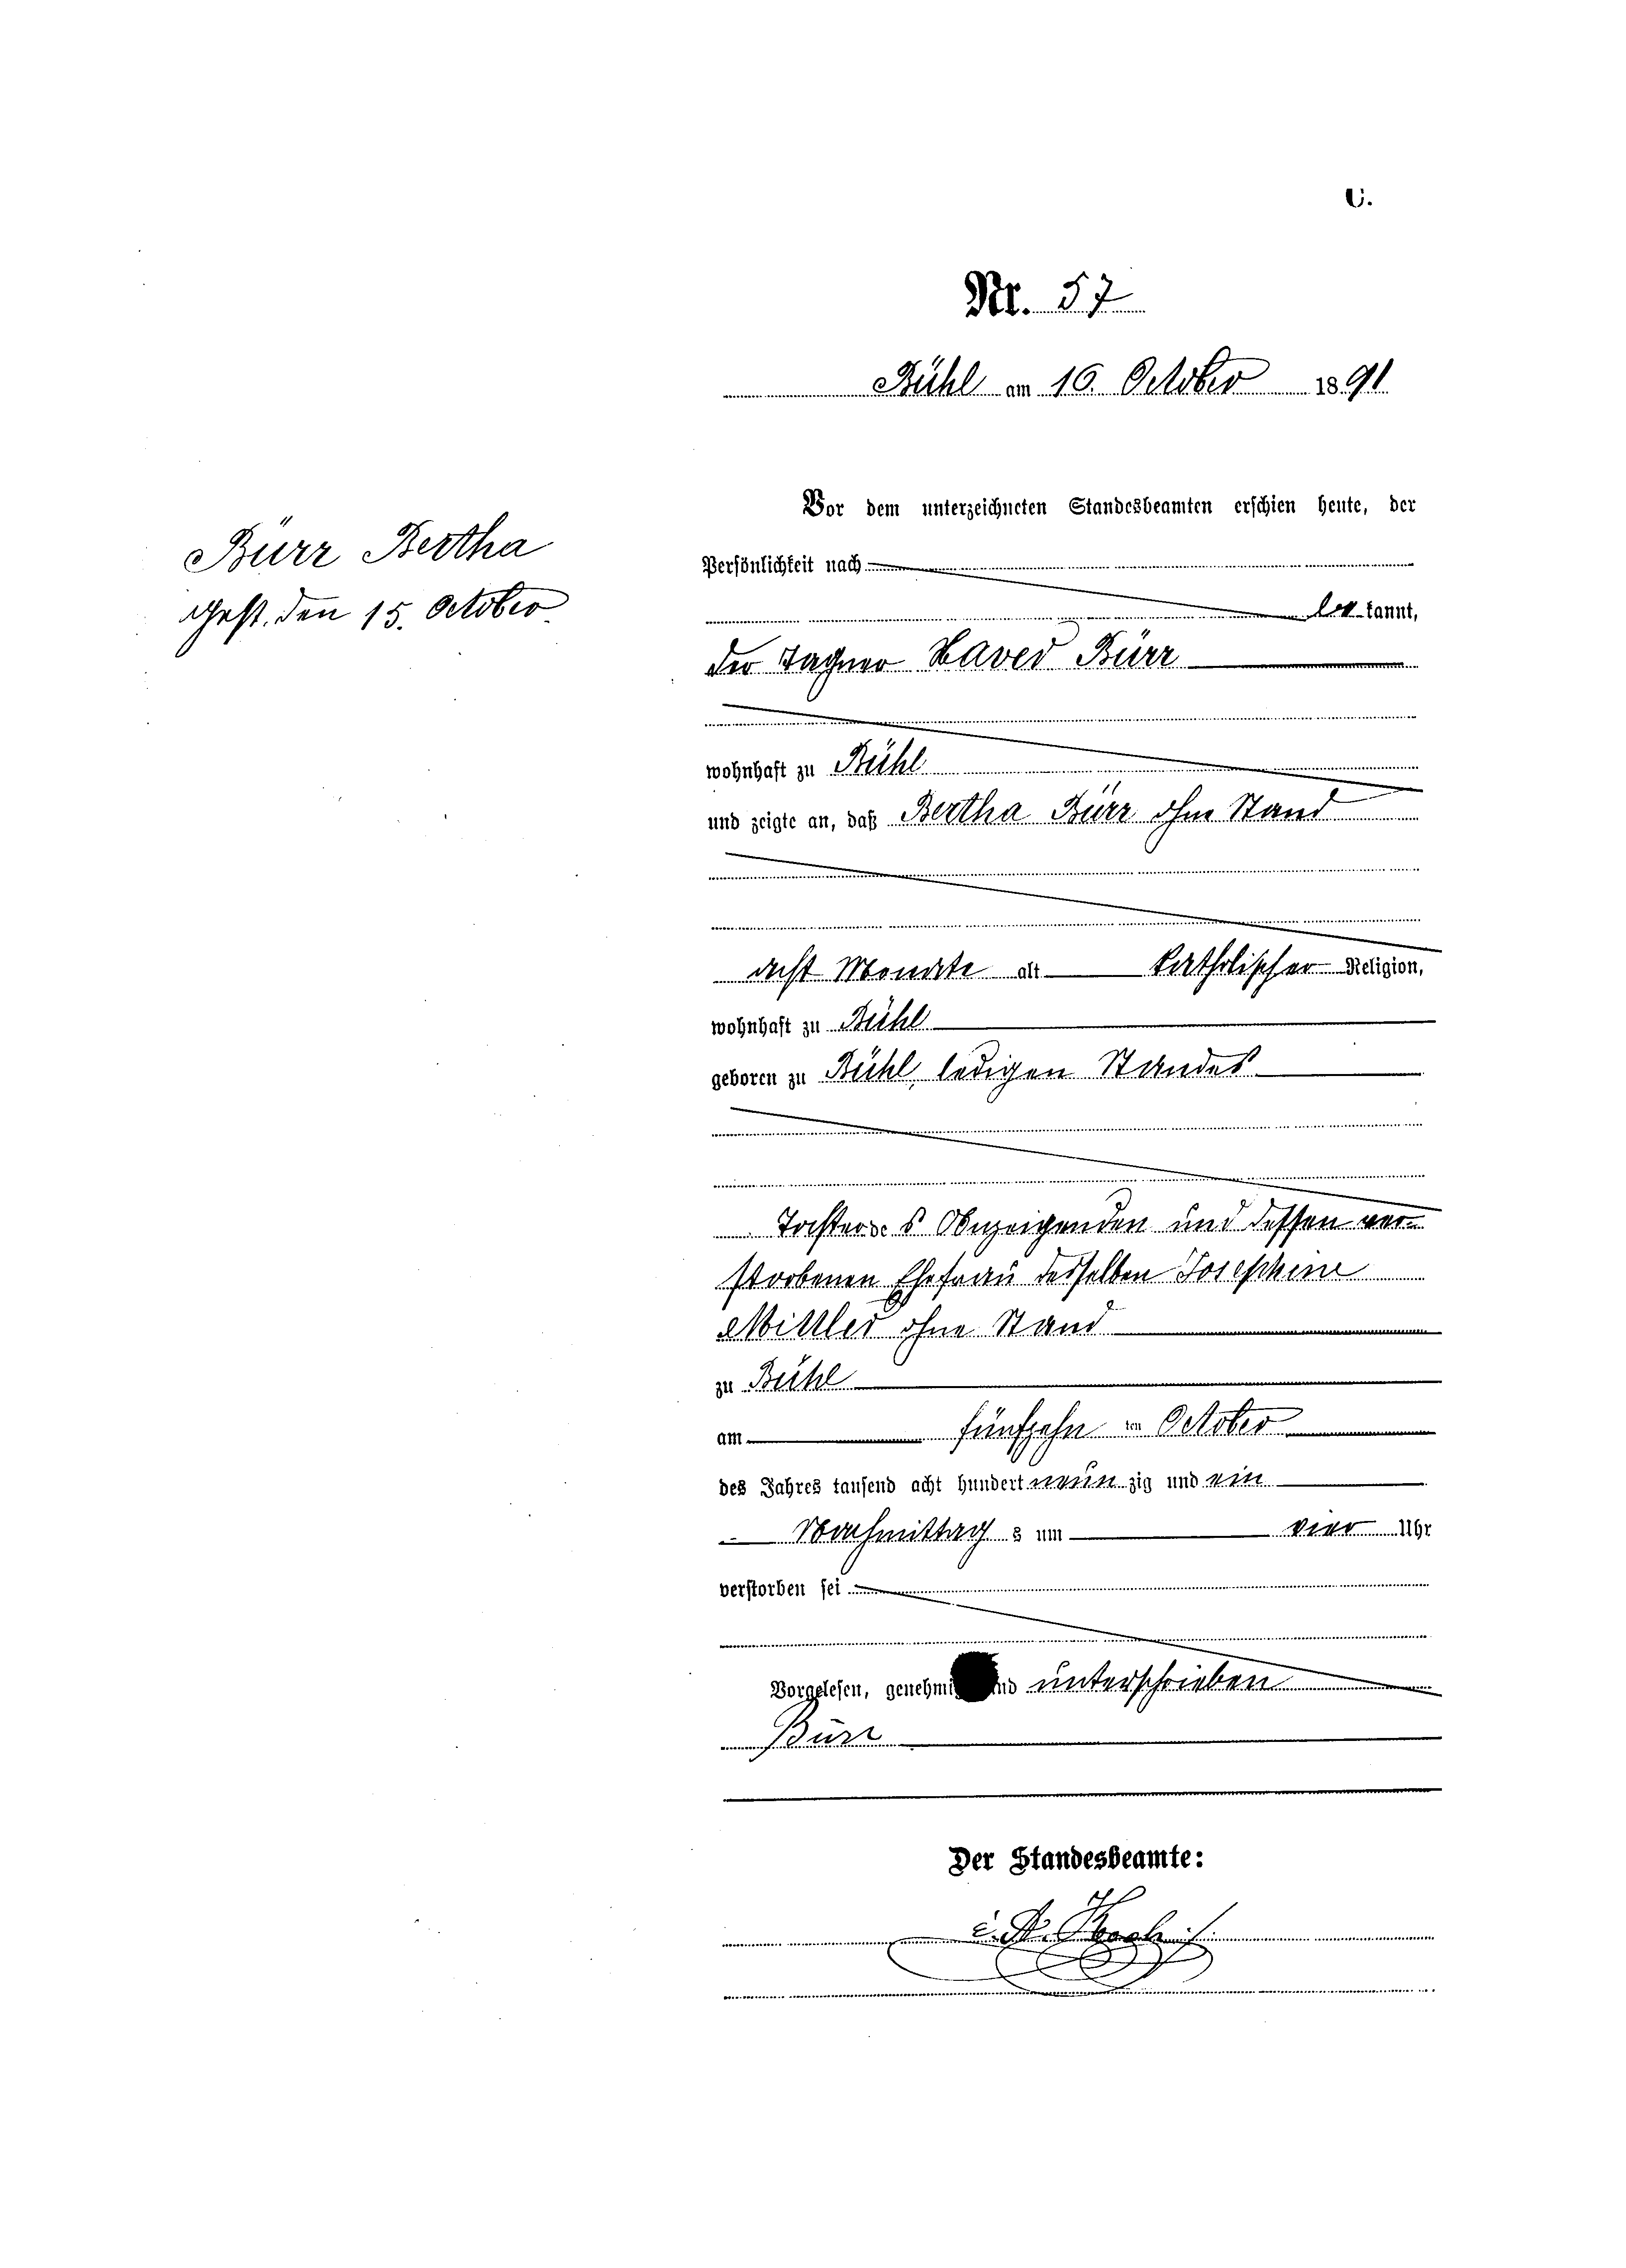 C.
Nr. 57
Bühl am 16. October 1891
Bürr Bertha
Gest. den 15. October
Vor dem unterzeichneten Standesbeamten erschien heute, der
Persönlichkeit nach
be kannt,
der Tagner Xaver Bürr
wohnhaft zu Bühl
und zeigte an, daß Bertha Bürr ohne Stand
acht Monate alt katholischer Religion,
wohnhaft zu Bühl
geboren zu Bühl, ledigen Standes
Tochter des Anzeigenden und dessen ver-
storbenen Ehefrau desselben Josephine
Mittler ohne Stand
zu Bühl
am fünfzehn ten October
des Jahres tausend acht hundert neun zig und ein
Nachmittag s um vier Uhr
verstorben sei
Vorgelesen, genehmi nd unterschrieben
Bürr
Der Standesbeamte: